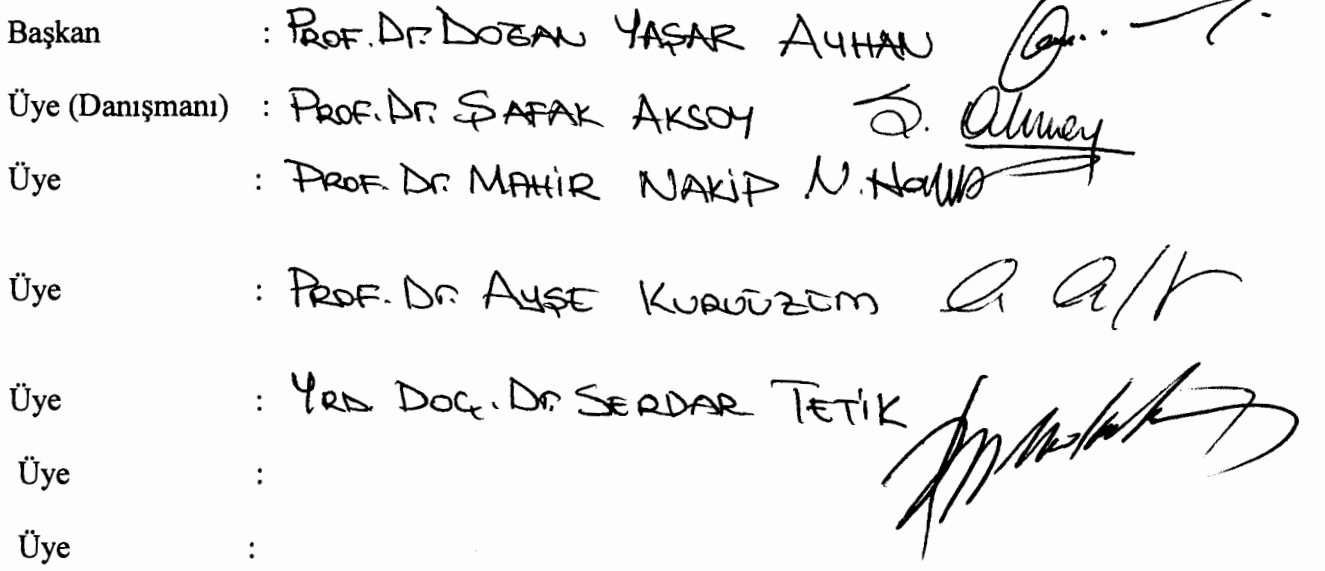 Başkan : PROF. Dr. DOĞAN YAŞAR AYHAN
Üye (Danışmanı) : PROF. Dr. ŞAFAK AKSOY
Üye : PROF. Dr. MAHİR NAKİP
Üye : PROF. Dr. AYŞE KURUÜZÜM
Üye : YRD. DOÇ. Dr. SERDAR TETİK
Üye :
Üye :